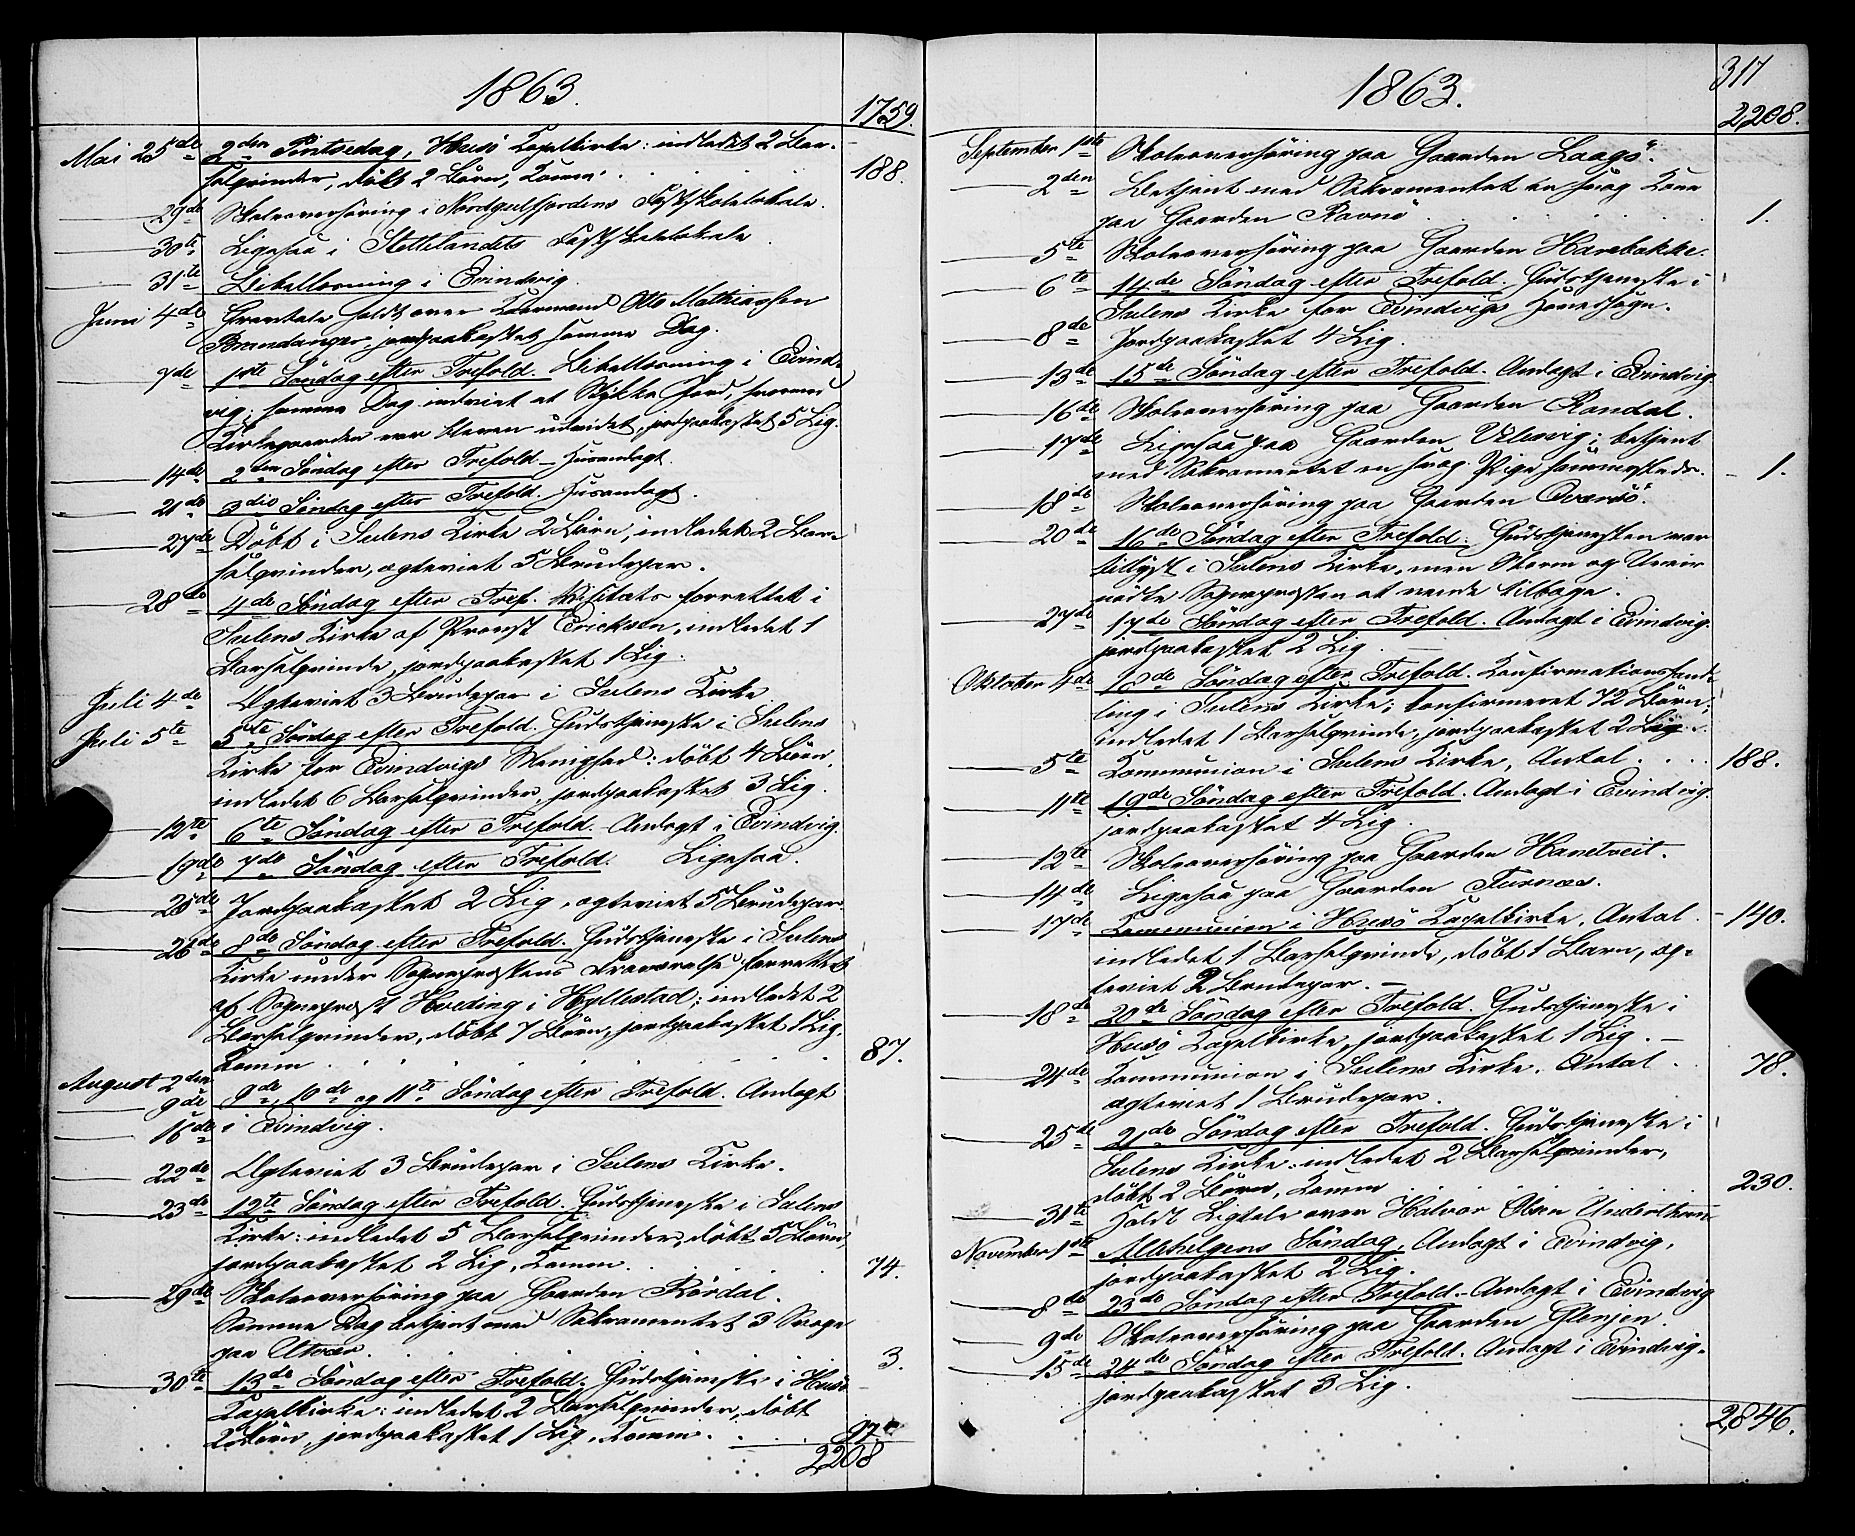 1863.
1759.
Mai 25de 2den Pintsedag, Husö Kapelkirke: indledet 2 Bar-
selqvinder, döbt 2 Börn, Komm. 188.
29de Skoleoverhöring i Nordgulfjordens Fastskolelokale.
30te Ligesaa i Slettelandets Fastskolelokale
31te Bibellæsning i Evindvig.
Juni 4de Gravtale holdt over Otto Mathiassen
Brandanger jordpaakastet samme Dag.
7de 1ste Söndag efter Trefold. Bibellæsning i Evind-
vig; samme Dag indviet et Stykke Jord, hvormed
Kirkegaarden var bleven udvidet, jordpaakastet 5 Lig.
14de 2den Söndag efter Trefold – Husandagt.
21de 3die Söndag efter Trefold. Husandagt.
27de Döbt i Sulens Kirke 2 Börn, indledet 2 Bar-
selqvinder, ægteviet 5 Brudepar.
28de 4de Söndag efter Tref. Visitats forrettet i
Sulens Kirke af Provst Erichsen, indledet 1
Barselqvinde, jordpaakastet 1 Lig.
Juli 4de Ægteviet 3 Brudepar i Sulens Kirke
Juli 5te 5te Söndag efter Trefold. Gudstjeneste i Sulens
Kirke for Evindvigs Menighed: döbt 4 Börn,
indledet 6 Barselqvinder, jordpaakastet 3 Lig.
12te 6te Söndag efter Trefold. Andagt i Evindvig.
19de 7de Söndag efter Trefold. Ligesaa.
25de Jordpaakastet 2 Lig, ægteviet 5 Brudepar.
26de 8de Söndag efter Trefold. Gudstjeneste i Sulens
Kirke under Sognepræstens Fraværelse forrettet
af Sognepræst Hveding i Hyllestad; indledet 2
Barselqvinder, döbt 7 Börn, jordpaakastet 1 Lig.
Komm. 87.
August 2den 9de, 10de og 11te Söndag efter Trefold. Andagt
9de
16de i Evindvig.
22de Ægteviet 3 Brudepar i Sulens Kirke.
23de 12te Söndag efter Trefold. Gudstjeneste i Sulens
Kirke: indledet 5 Barselqvinder, döbt 5 Börn,
jordpaakastet 2 Lig, Komm. 74.
29de Skoleoverhöring paa Gaarden Rördal.
Samme Dag betjent med Sakramentet 3 Svage
paa Utvær. 3.
30te 13de Söndag efter Trefold. Gudstjeneste i Husö
Kapelkirke: indledet 2 Barselqvinder, döbt
Börn, jordpaakastet 1 Lig, Komm. 97.
2208
1863.
317
2,208.
September 1ste Skoleoverhöring paa Gaarden Laagö.
2den Betjent med Sakramentet en svag Kone
paa Gaarden Ravnö 1.
5te Skoleoverhöring paa Gaarden Havebakke.
6te 14de Söndag efter Trefold. Gudstjeneste i
Sulens Kirke for Evindvigs Hovedsogn.
8de Jordpaakastet 4 Lig.
13de 15de Söndag efter Trefold. Andagt i Evindvig
16de Skoleoverhöring paa Gaarden Randal.
17de Ligesaa paa Gaarden; betjent
med Sakramentet en svag Pige sammesteds. 1.
18de Skoleoverhöring paa Gaarden Oversö.
20de 16de Söndag efter Trefold. Gudstjenesten var
tillyst i Sulens Kirke, men Storm og Uveir
nödte Sognepræsten at vende tilbage.
27de 17de Söndag efter Trefold. Andagt i Evindvig.
jordpaakastet 2 Lig.
Oktober 4de 18de Söndag efter Trefold. Konfirmationshand-
ling i Sulens Kirke; konfirmeret 72 Börn;
indledet 1 Barselqvinde, jordpaakastet 2 Lig.
5te Kommunion i Sulens Kirke, Antal 188.
11te 19de Söndag efter Trefold. Andagt i Evindvig.
jordpaakastet 4 Lig.
12te Skoleoverhöring paa Gaarden Hanetveit.
14de Ligesaa paa Gaarden Furnæs.
17de Kommunion i Husö Kapelkirke, Antal 140.
indledet 1 Barselqvinde, döbt 1 Barn, æg-
teviet 2 Brudepar. –
18de 20de Söndag efter Trefold. Gudstjeneste i
Husö Kapelkirke, jordpaakastet 1 Lig. –
24de Kommunion i Sulens Kirke. Antal 78.
ægteviet 1 Brudepar.
25de 21de Söndag efter Trefold. Gudstjeneste i
Sulens Kirke: indledet 2 Barselqvinder,
döbt 2 Börn, Komm 230.
31te Holdt Ligtale over Halvor Olsen
November 1ste Allehelgens Söndag, Andagt i Evindvig,
jordpaakastet 2 Lig.
8de 23de Söndag efter Trefold. Andagt i Evindvig
9de Skoleoverhöring paa Gaarden Glenjen.
15de 24de Söndag efter Trefold. Andagt i Evindvig.
jordpaakastet 3 Lig.
2,846.